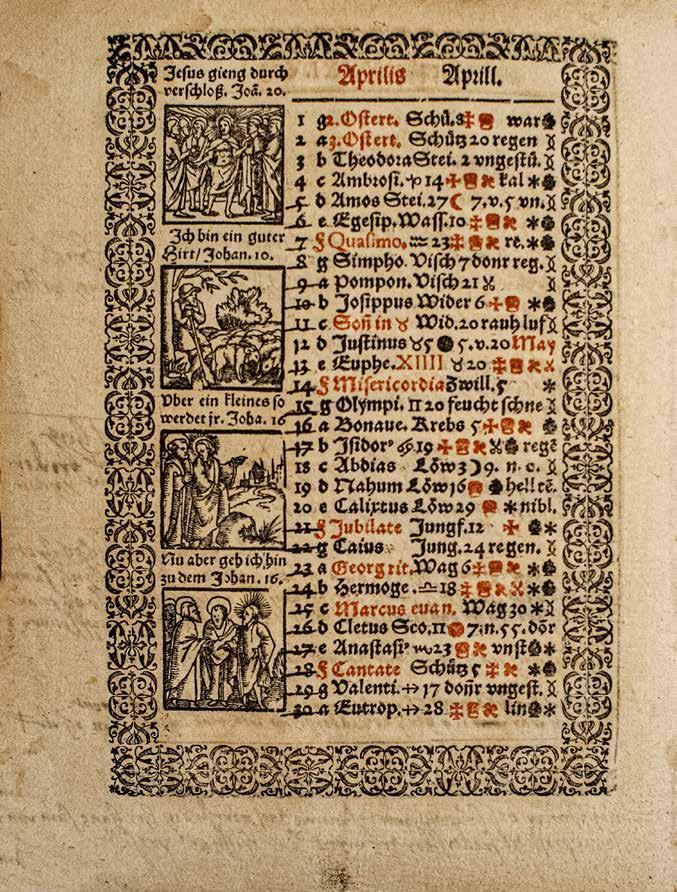 Jesus gieng durch
verschloß. Joā. 20.
Ich bin ein guter
Hirt/Johan. 10.
Vber ein kleines so
werdet jr. Joha. 16
Nu aber geh ich hin
zu dem Johan. 16.
Aprilis Aprill.
1 g 2. Ostert. Schü. 8 war
2 a 3. Ostert. Schütz 20 regen
3 b Theodora Stei. 2 vngestü.
4 c Ambrosi. ♑ 14 kal *
5 d Amos Stei. 27 ☾ 7. v. 5 vn.
6 e Egesip. Wass. 10 *
7 f Quasimo. ♒ 23 re. *
8 g Simpho. Visch 7 donr reg.
9 a Pompon. Visch 21
10 b Josippus Wider 6 *
11 c Soñ in ♉ Wid. 20 rauh luf
12 d Justinus ♉ 5 ● 5. v. 20 May
13 e Euphe. XIIII ♉ 20
14 f Misericordia Zwill. 5 *
15 g Olympi. ♊ 20 feucht schne
16 a Bonaue. Krebs 5 *
17 b Isidor⁹ ♋ 19 regē
18 c Abdias Löw 3 ☽ 9. n. 0.
19 d Nahum Löw 16 hell tē.
20 e Calixtus Löw 29 * nibl.
21 f Jubilate Jungf. 12 *
22 g Caius Jung. 24 regen.
23 a Georg rit. Wag 6 *
24 b Hermoge. ♎ 18 *
25 c Marcus euan. Wag 30 *
26 d Cletus Sco. 11 7. n. 55. döꝛ
27 e Anastasi⁹ ♏ 23 vnst *
28 f Cantate Schütz 5 *
29 g Valenti. ♐ 17 doñr vngest.
30 a Eutrop. ♐ 28 lin *